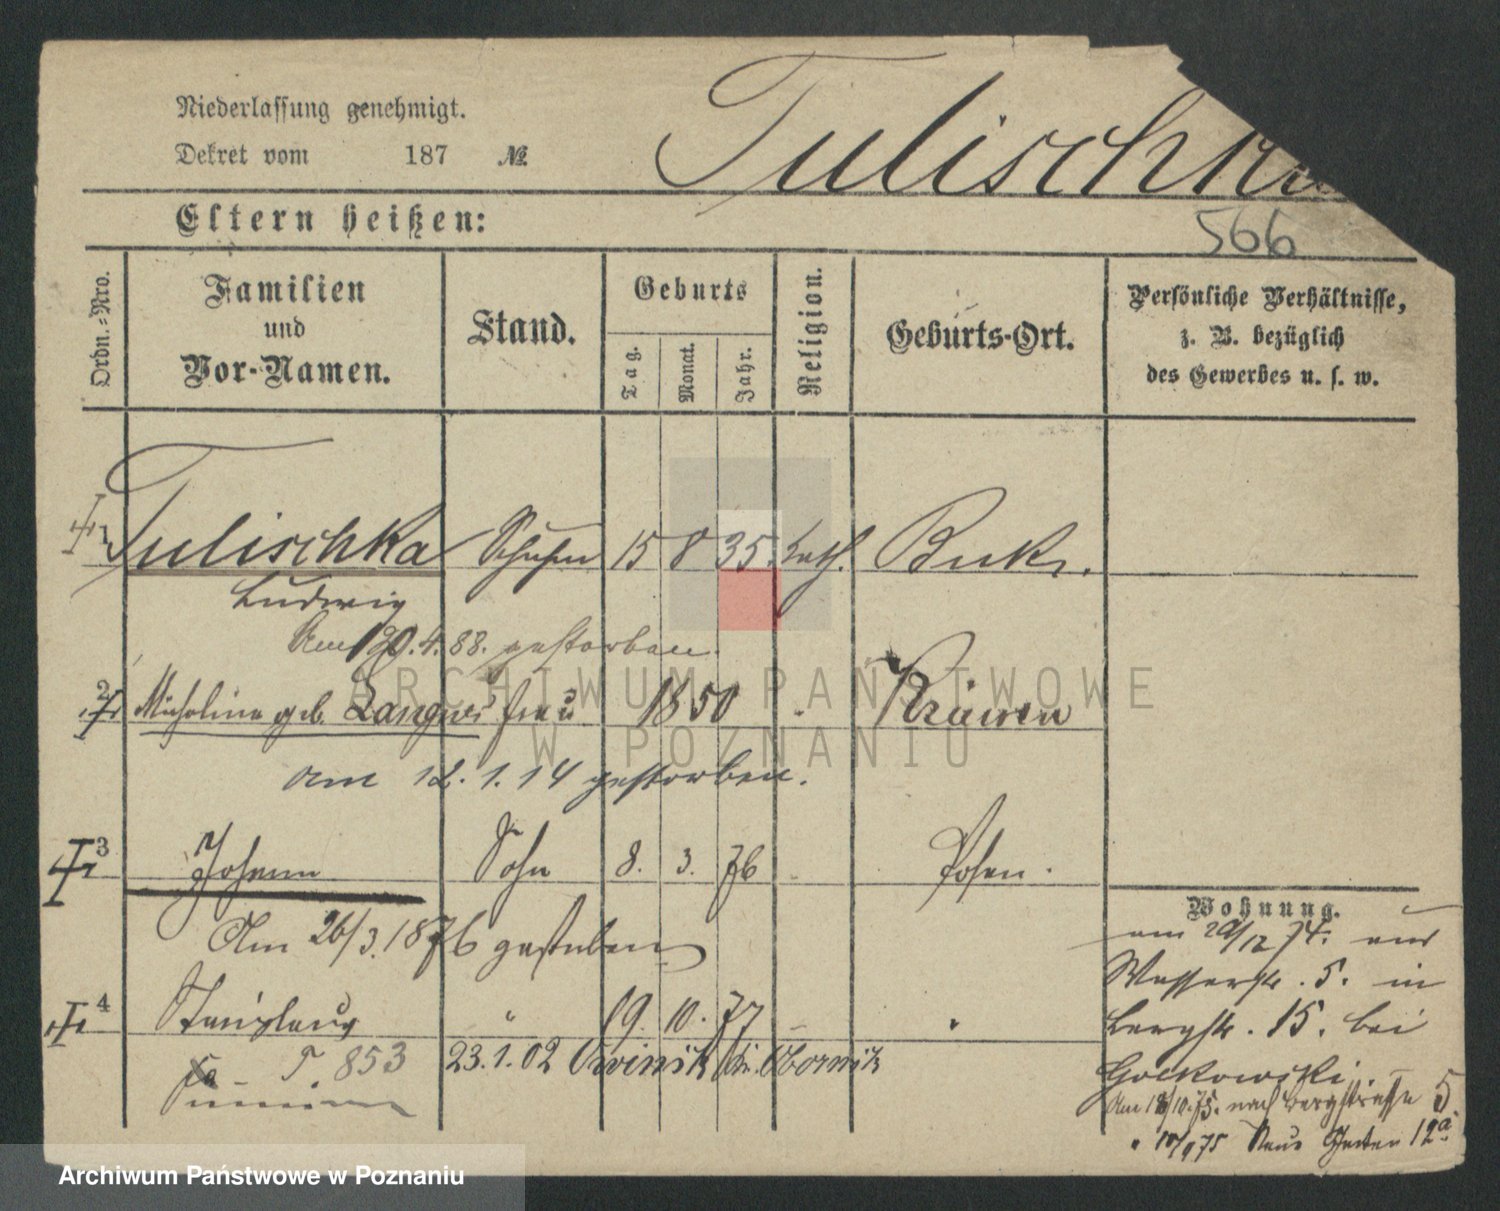 Niederlassung genehmigt.
Dekret vom 187 №
Tulischka
566
Eltern heißen:
Ordn.-Nro.
Familien
und
Vor-Namen.
Stand.
Geburts
Tag.
Monat.
Jahr.
Religion.
Geburts-Ort.
Persönliche Verhältnisse,
z. B. bezüglich
des Gewerbes u. s. w.
1 Tulischka 15 8 35. kath. Buk.
Ludwig
Am 4. 88. gestorben.
2 Micholina geb. frau 1850
am 12. 1. 14 gestorben.
3 Johann Sohn 8. 3. 76 Posen.
Am 26/3. 1876 gestorben
4 Stanislaus " 19. 10. 77 "
T. 853 23.1.02
Wohnung.
am 29/12 74. aus
Wasserstr. 5. in
Bergstr. 15. bei
Gockowski
Am 18/10. 75. nach Bergstrasse 5
" 10/9 75 Neue Garten 12a
ARCHIWUM PAŃSTWOWE
W POZNANIU
Archiwum Państwowe w Poznaniu